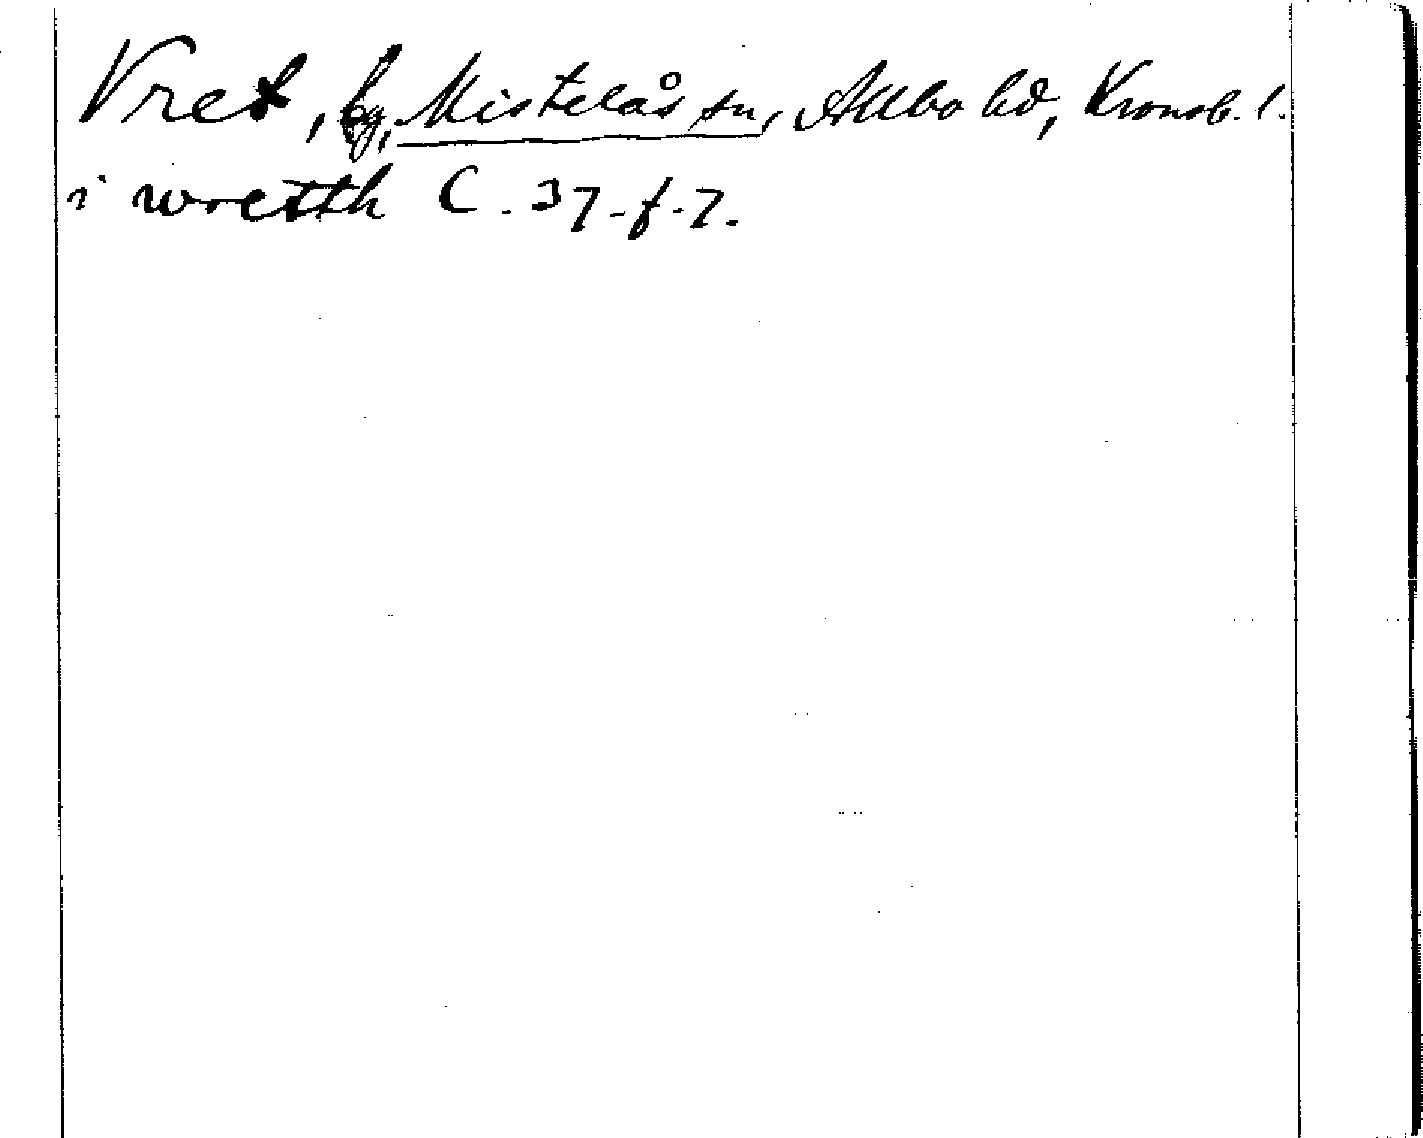 Vret, by, Mistelås sn, Allbo hd, Kronob. l.
i wretth C. 37. f. 7.